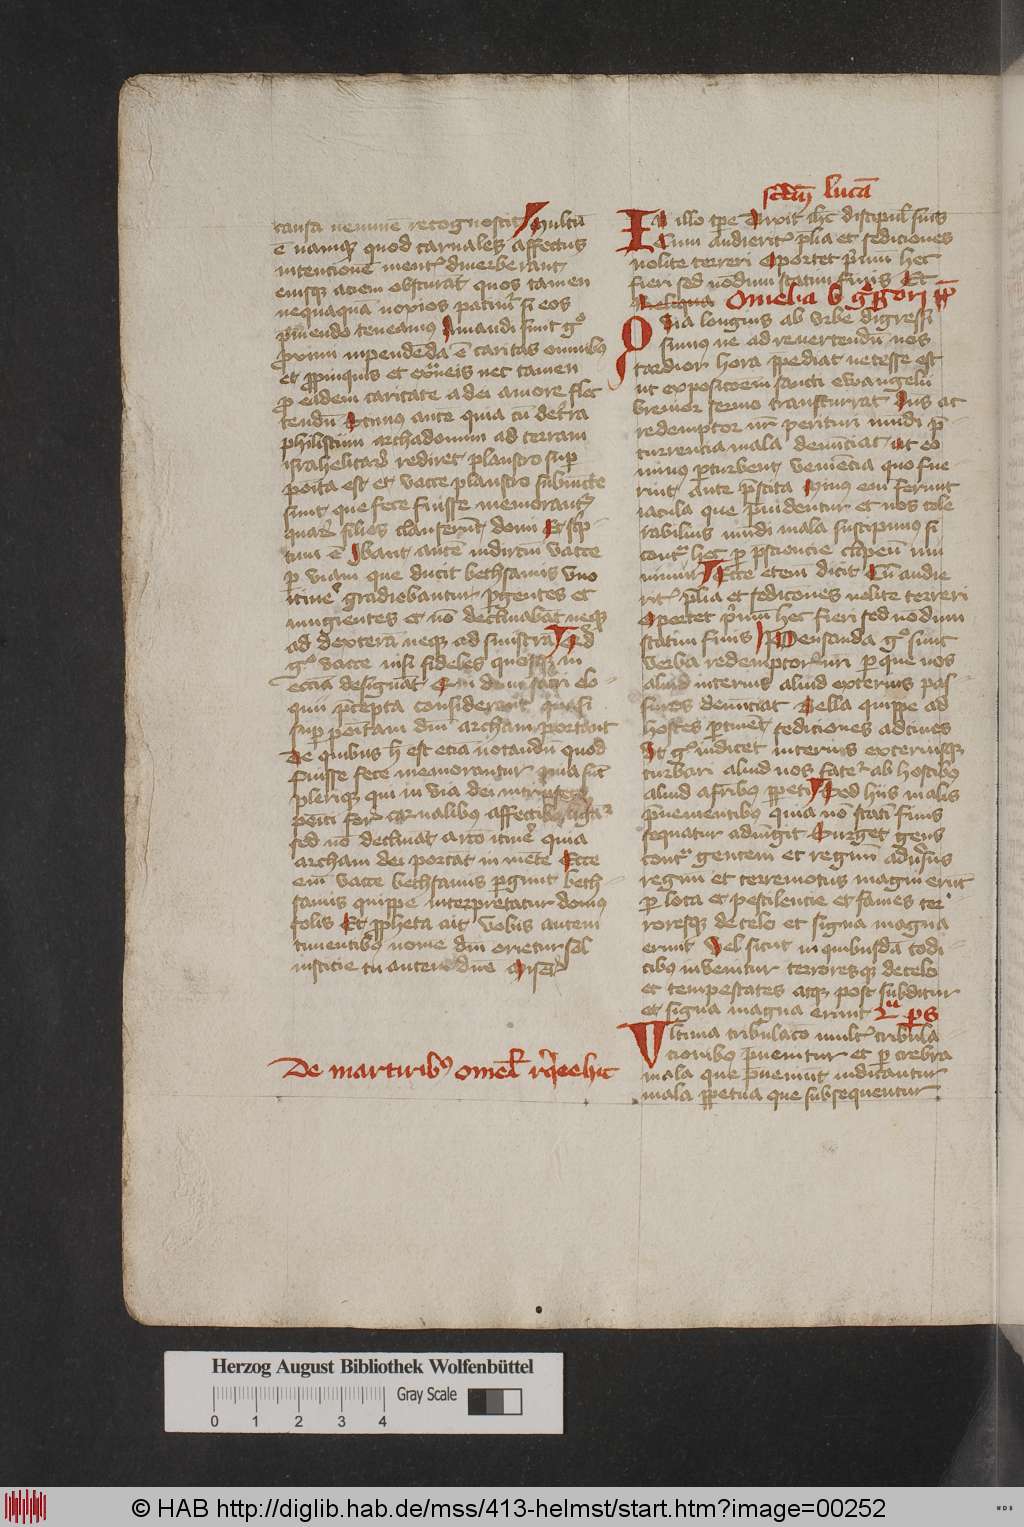 causa nemine recognoscit Multū
ē namq; quod carnales affectus
intencionē mentꝭ diverberant
eiusq; aciem obscurāt quos tamen
nequaquā noxios patimꝰ si eos
p̄mendo teneamus Amandi sunt gͦ
proximi inpendēda ē caritas omnibꝰ
et ꝓpinquis et ext̄neis nec tamen
ꝓ eadem caritate a dei amore flec
tendū Scimus aute quia cū de t̄ra
philistiim archa domini ad terram
israhelitaꝝ rediret plaustro suꝑ
poīta est et vacce plaustro subiūcte
sunt que fete fuisse memorantꝰ
quaꝝ filios clauserūt domi Et scp̄
tum ē Ibant autē indirctū vacce
ꝑ viam que ducit bethsamis vno
itinere gradiebantur pergentes et
mugientes et nō declinabāt neq;
ad dexterā neq; ad sinistrā Quid
gͦ vacce nisi fideles quosq; in
ecc̄ia designāt Qui dum sacri elo-
quii p̄cepta considerant quasi
suꝑ poītam dn̄i archam portant
De quibus h̄ est ecia notandū quod
fuisse fete memorantur quia sūt
pleriq; qui in via dei intrinsecꝰ
poīti foris carnalibus affectibꝰ ligātꝰ
sed nō declināt a rcō itinere quia
archam dei portāt in mēte Ecce
em̄ vacce bethsamis ꝑgunt beth-
samis quippe interpretatur domꝰ
solis Et ꝓpheta ait vobis autem
timentibꝰ nomē dn̄i orietur sol
iusticie tu autem dn̄e Miserē
De martiribꝰ omel̄ rͦqͤre hic
scd̄m lucā
In illo tꝑe Dixit ih̄c discipul̄ suis
Cum audieritꝭ p̄lia et sediciones
nolite terreri Oportet p̄mū hec
fieri sed nōdum statim finis Et
Reliqua Omelia b̄ gͤgori pp̄
Quia longius ab vrbe digressi
sumus ne ad revertendū nos
tardior hora ꝓpediat necesse est
ut exposicōem sancti ewangelii
brevior sermo transcurrat Dūs ac
redemptor nr̄ perituri mūdi p̄
currencia mala denūciat ut eo
minus ꝑturbent veniēcia quo fue
rint ante p̄scita Minus em̄ feriunt
iacula que p̄uidentur et nos tole
rabilius mūdi mala suscipimus si
contͣ hec ꝑ p̄sciencie clipeū mu
nimur Ecce etem̄ dicit Cū audie
ritꝭ p̄lia et sediciones nolite terreri
Oportet p̄mū hec fieri sed nōdum
statim finis Pensanda gͦ sunt
verba redemptorꝭ nr̄i ꝑ que nos
aliud interius aliud exterius pas-
suros denūciat Bella quippe ad
hostes ꝑtinēt sediciones ad ciues
Ut gͦ indicet interius exteriusq;
turbari aliud nos fateꝰ ab hostibꝰ
aliud a fr̄ibꝰ ꝑpeti Sed hiis malis
p̄uenientibus quia nō stati finis
sequatur adiūgit Surget gens
contͣ gentem et regnū aduersus
regnū et terremotus magni erūt
ꝑ loca et pestilencie et fames ter-
roresq; de celo et signa magna
erunt Vel sicut in quibusdā codi-
cibꝰ invenitur terroresq; de celo
et tempestates atq; post subditur
et signa magna erunt Lͨ p̄s
Vltima tribulacio multꝭ tribula
cionibꝰ p̄uenitur et ꝑ crebra
mala que p̄ueniūt indicantur
mala ꝑpetua que subsequentur
Herzog August Bibliothek Wolfenbüttel
Gray Scale
0 1 2 3 4
© HAB http://diglib.hab.de/mss/413-helmst/start.htm?image=00252
WDB